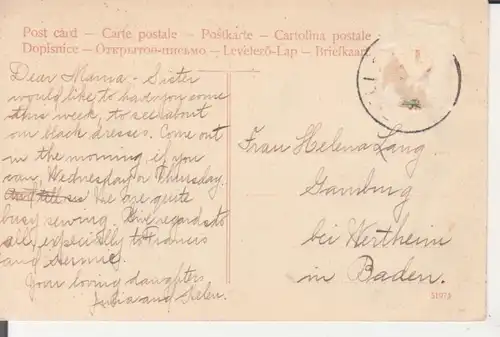 Post card – Carte postale – Postkarte – Cartolina postale
Dopisnice – Открытое-письмо – Levelező-Lap – Briefkaart
Dear Mama - Sister
would like to have you come
this week, to see about
our black dresses. Come out
in the morning if you
can, Wednesday or Thursday.
We are quite
busy sewing. Give regards to
all, especially to Francis
and
Your loving daughters
Julia and Helen.
Frau Helena Lang
Gamburg
bei Wertheim
in Baden.
51973